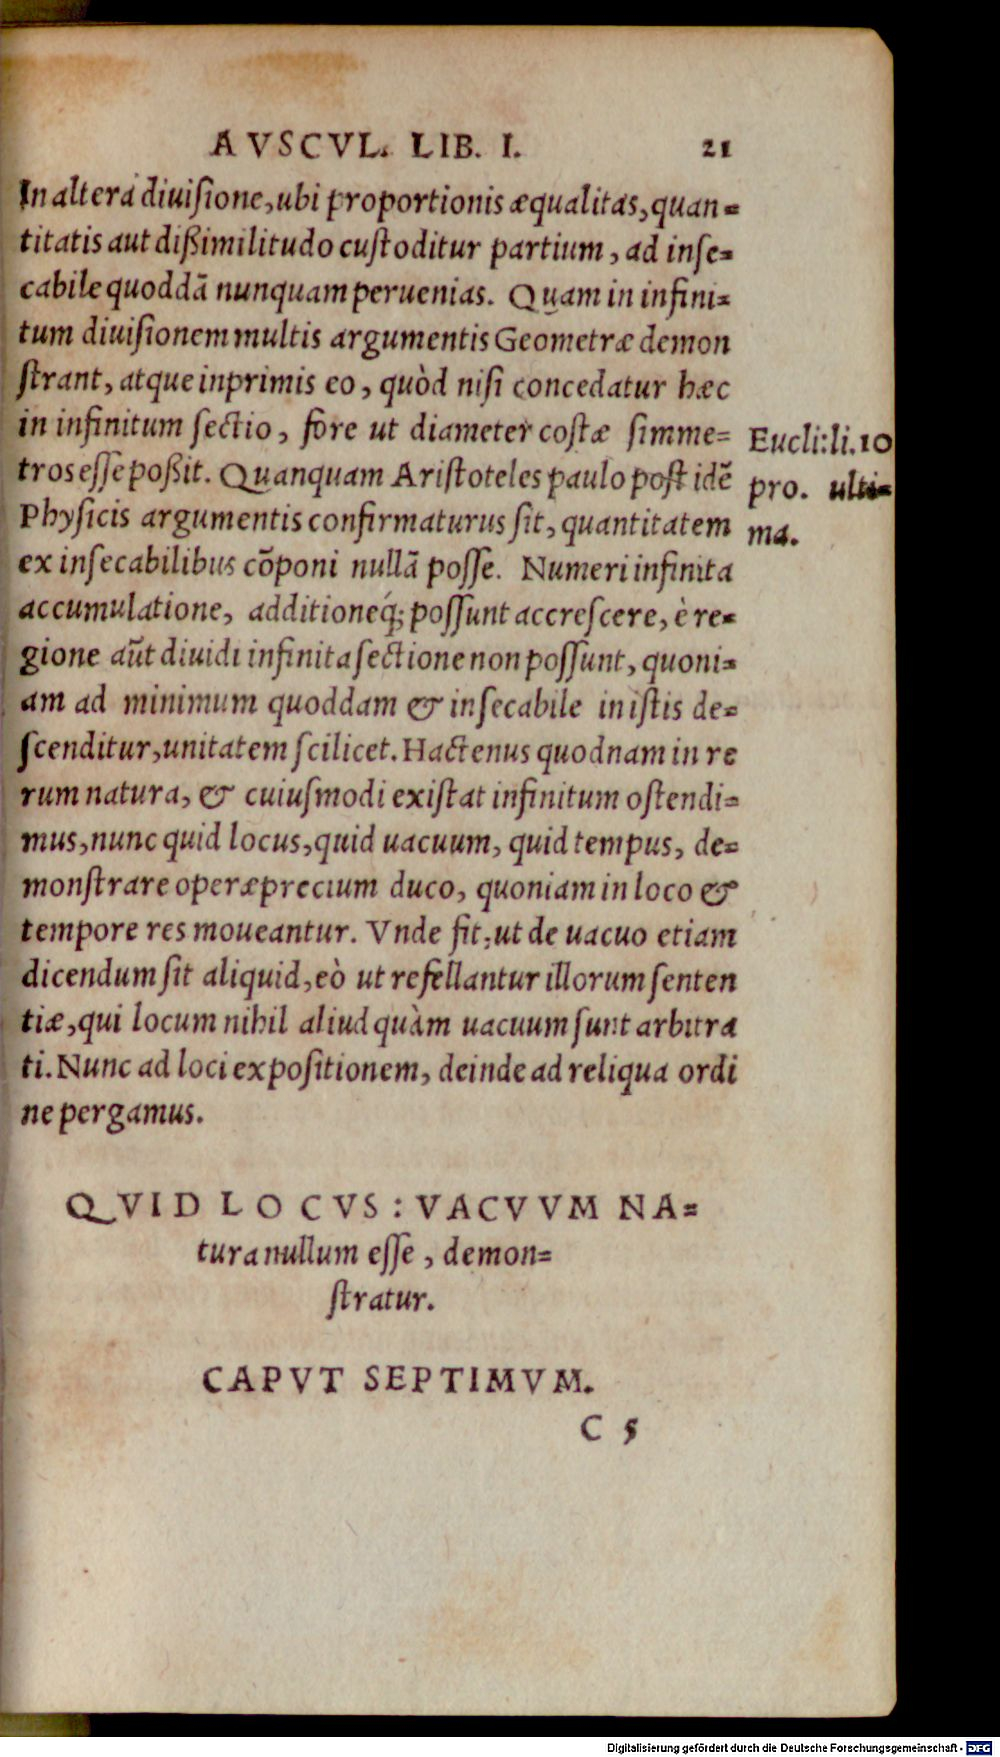 AVSCVL. LIB. I. 21
In altera diuisione, ubi proportionis æqualitas, quan=
titatis aut dißimilitudo custoditur partium, ad inse=
cabile quoddã nunquam peruenias. Quam in infini=
tum diuisionem multis argumentis Geometræ demon
strant, atque inprimis eo, quòd nisi concedatur hæc
in infinitum sectio, fore ut diameter costæ simme=
tros esse poßit. Quanquam Aristoteles paulo post idẽ
Physicis argumentis confirmaturus sit, quantitatem
ex insecabilibus cõponi nullã posse. Numeri infinita
accumulatione, additioneq́; possunt accrescere, è re=
gione aũt diuidi infinita sectione non possunt, quoni=
am ad minimum quoddam & insecabile in istis de=
scenditur, unitatem scilicet. Hactenus quodnam in re
rum natura, & cuiusmodi existat infinitum ostendi=
mus, nunc quid locus, quid uacuum, quid tempus, de=
monstrare operæprecium duco, quoniam in loco &
tempore res moueantur. Vnde fit, ut de uacuo etiam
dicendum sit aliquid, eò ut refellantur illorum senten
tiæ, qui locum nihil aliud quàm uacuum sunt arbitra
ti. Nunc ad loci expositionem, deinde ad reliqua ordi
ne pergamus.
Eucli: li. 10
pro. ulti=
ma.
QVID LOCVS: VACVVM NA=
tura nullum esse, demon=
stratur.
CAPVT SEPTIMVM.
C 5
Digitalisierung gefördert durch die Deutsche Forschungsgemeinschaft - DFG